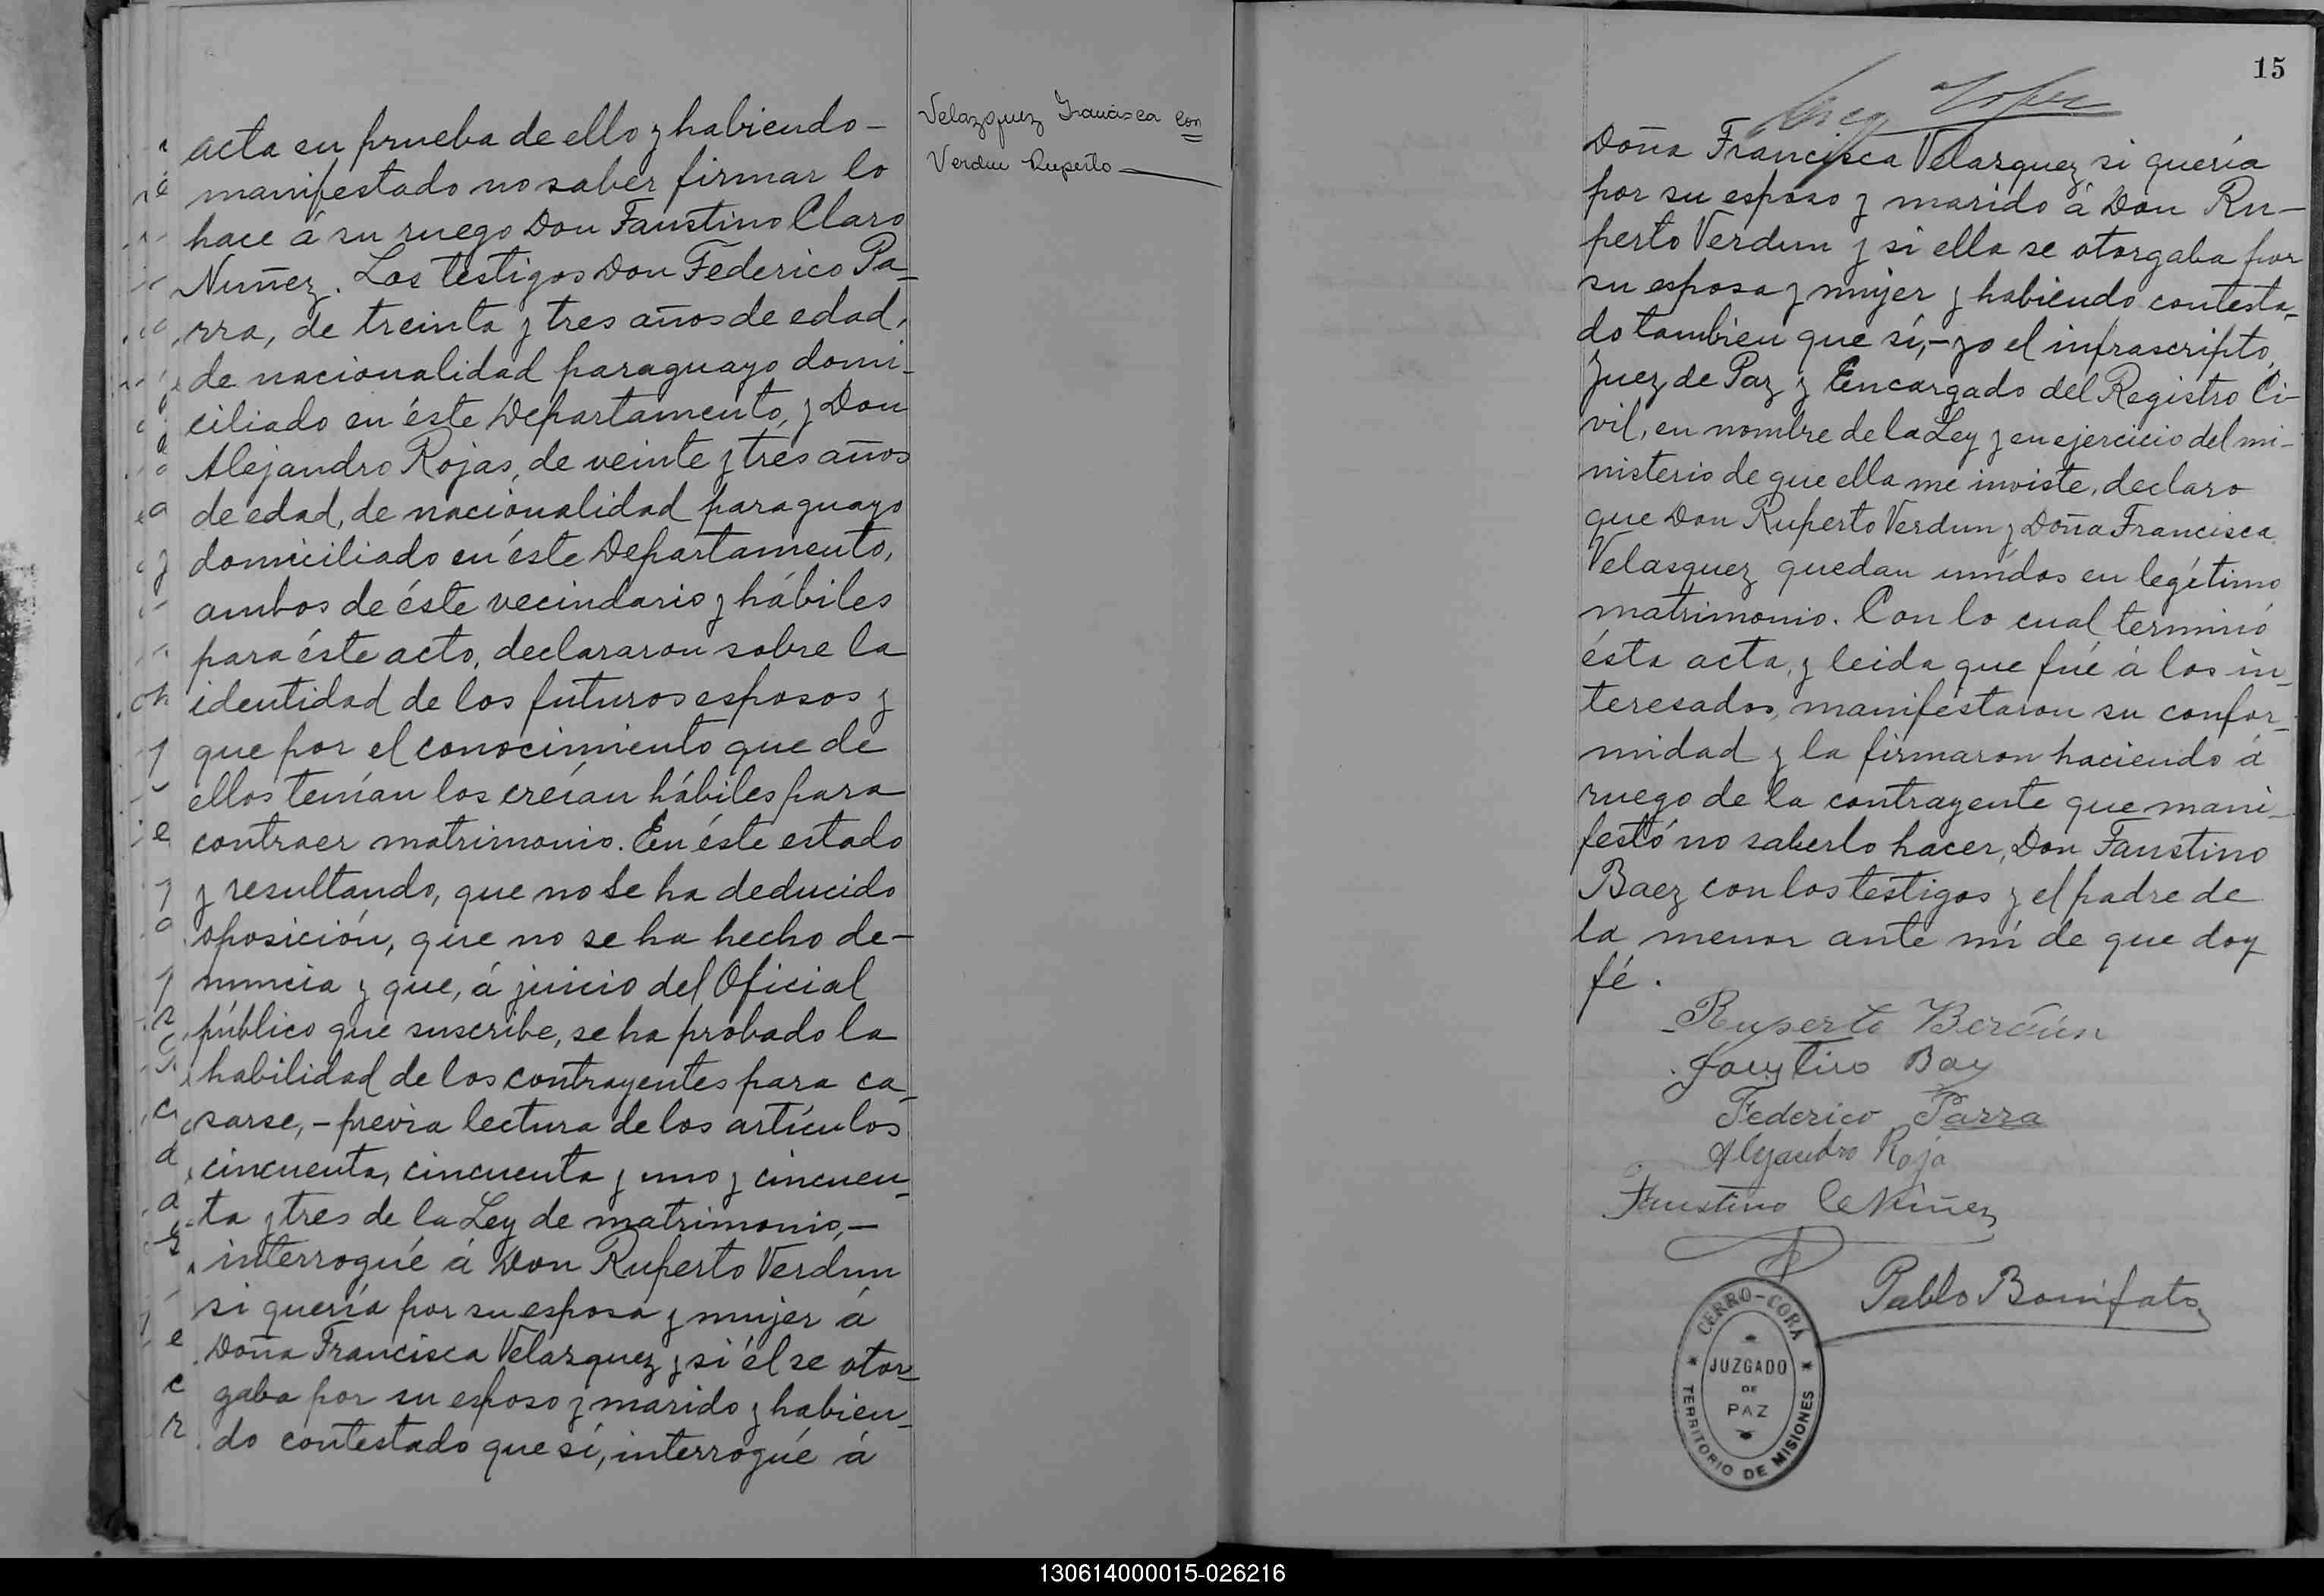 acta en prueba de ello y habiendo-
manifestado no saber firmar lo
hace á su ruego Don Faustino Claro
Nuñez. Los testigos Don Federico Pa-
rra, de treinta y tres años de edad,
de nacionalidad paraguayo domi-
ciliado en éste Departamento, y Don
Alejandro Rojas, de veinte y tres años
de edad, de nacionalidad paraguayo
domiciliado en éste Departamento,
ambos de éste vecindario y hábiles
para éste acto, declararon sobre la
identidad de los futuros esposos y
que por el conocimiento que de
ellos tenían los creían hábiles para
contraer matrimonio. En éste estado
y resultando, que no se ha deducido
oposición, que no se ha hecho de-
nuncia y que, á juicio del Oficial
público que suscribe, se ha probado la
habilidad de los contrayentes para ca-
sarse,- previa lectura de los artículos
cincuenta, cincuenta y uno y cincuen-
ta y tres de la Ley de matrimonio,-
interrogué á Don Ruperto Verdun
si quería por su esposa y mujer á
Doña Francisca Velazquez y si él se otor-
gaba por su esposo y marido y habien-
do contestado que sí, interrogué á
Velazquez Francisca con
Verdun Ruperto
15
Doña Francisca Velazquez si quería
por su esposo y marido á Don Ru-
perto Verdun y si ella se otorgaba por
su esposa y mujer y habiendo contesta-
do tambien que sí,- yo el infrascripto,
Juez de Paz y Encargado del Registro Ci-
vil, en nombre de la Ley y en ejercicio del mi-
nisterio de que ella me inviste, declaro
que Don Ruperto Verdun y Doña Francisca
Velasquez quedan unidos en legítimo
matrimonio. Con lo cual terminó
ésta acta, y leida que fué á los in-
teresados, manifestaron su confor-
midad y la firmaron haciendo á
ruego de la contrayente que mani-
festó no saberlo hacer, Don Faustino
Baez con los testigos y el padre de
la menor ante mí de que doy
fé.
Ruperto Berdún
Faustino Baez
Federico Parra
Alejandro Roja
Faustino C Nuñez
Pablo Bonifato
CERRO-CORÁ
JUZGADO
DE
PAZ
TERRITORIO DE MISIONES
130614000015-026216